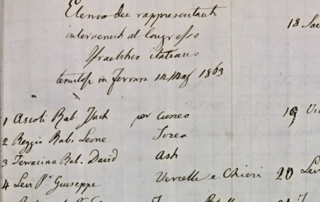 Elenco dei rappresentanti
intervenuti al Congresso
Israelitico italiano
tenutosi in Ferrara 1863
18
1 Ascoli Rab. Jach per Cuneo
19
2 Reggio Rab. Leone
3 Terracina Rab. David Asti
4 Levi Pr Giuseppe Vercelli e Chieri
20 Levi